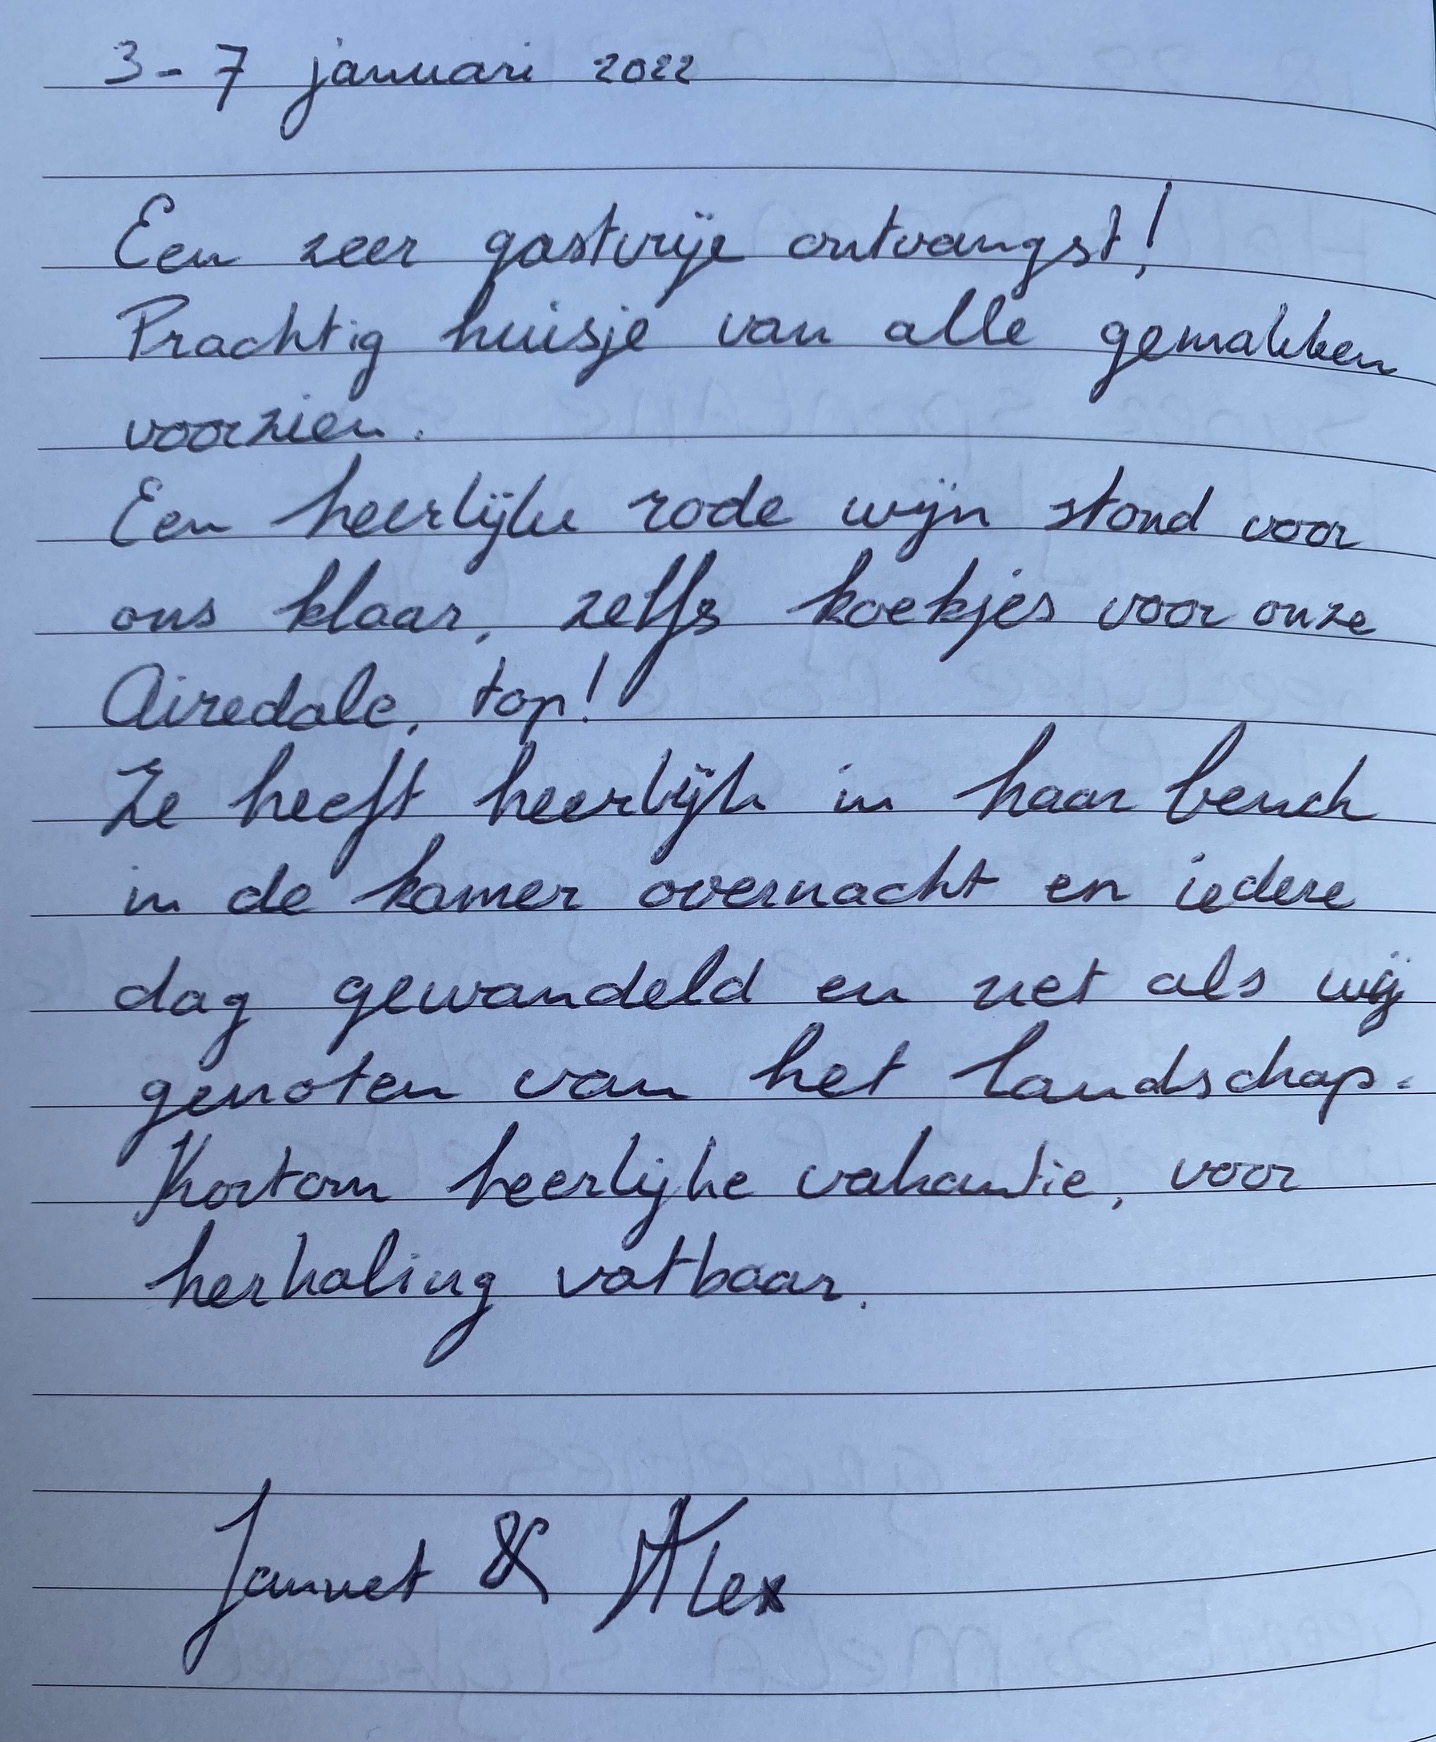 3 - 7 januari 2022
Een zeer gastvrije ontvangst!
Prachtig huisje van alle gemakken
voorzien.
Een heerlijke rode wijn stond voor
ons klaar, zelfs koekjes voor onze
Airedale, top!
Ze heeft heerlijk in haar bench
in de kamer overnacht en iedere
dag gewandeld en net als wij
genoten van het landschap.
Kortom heerlijke vakantie, voor
herhaling vatbaar.
Jannet & Alex